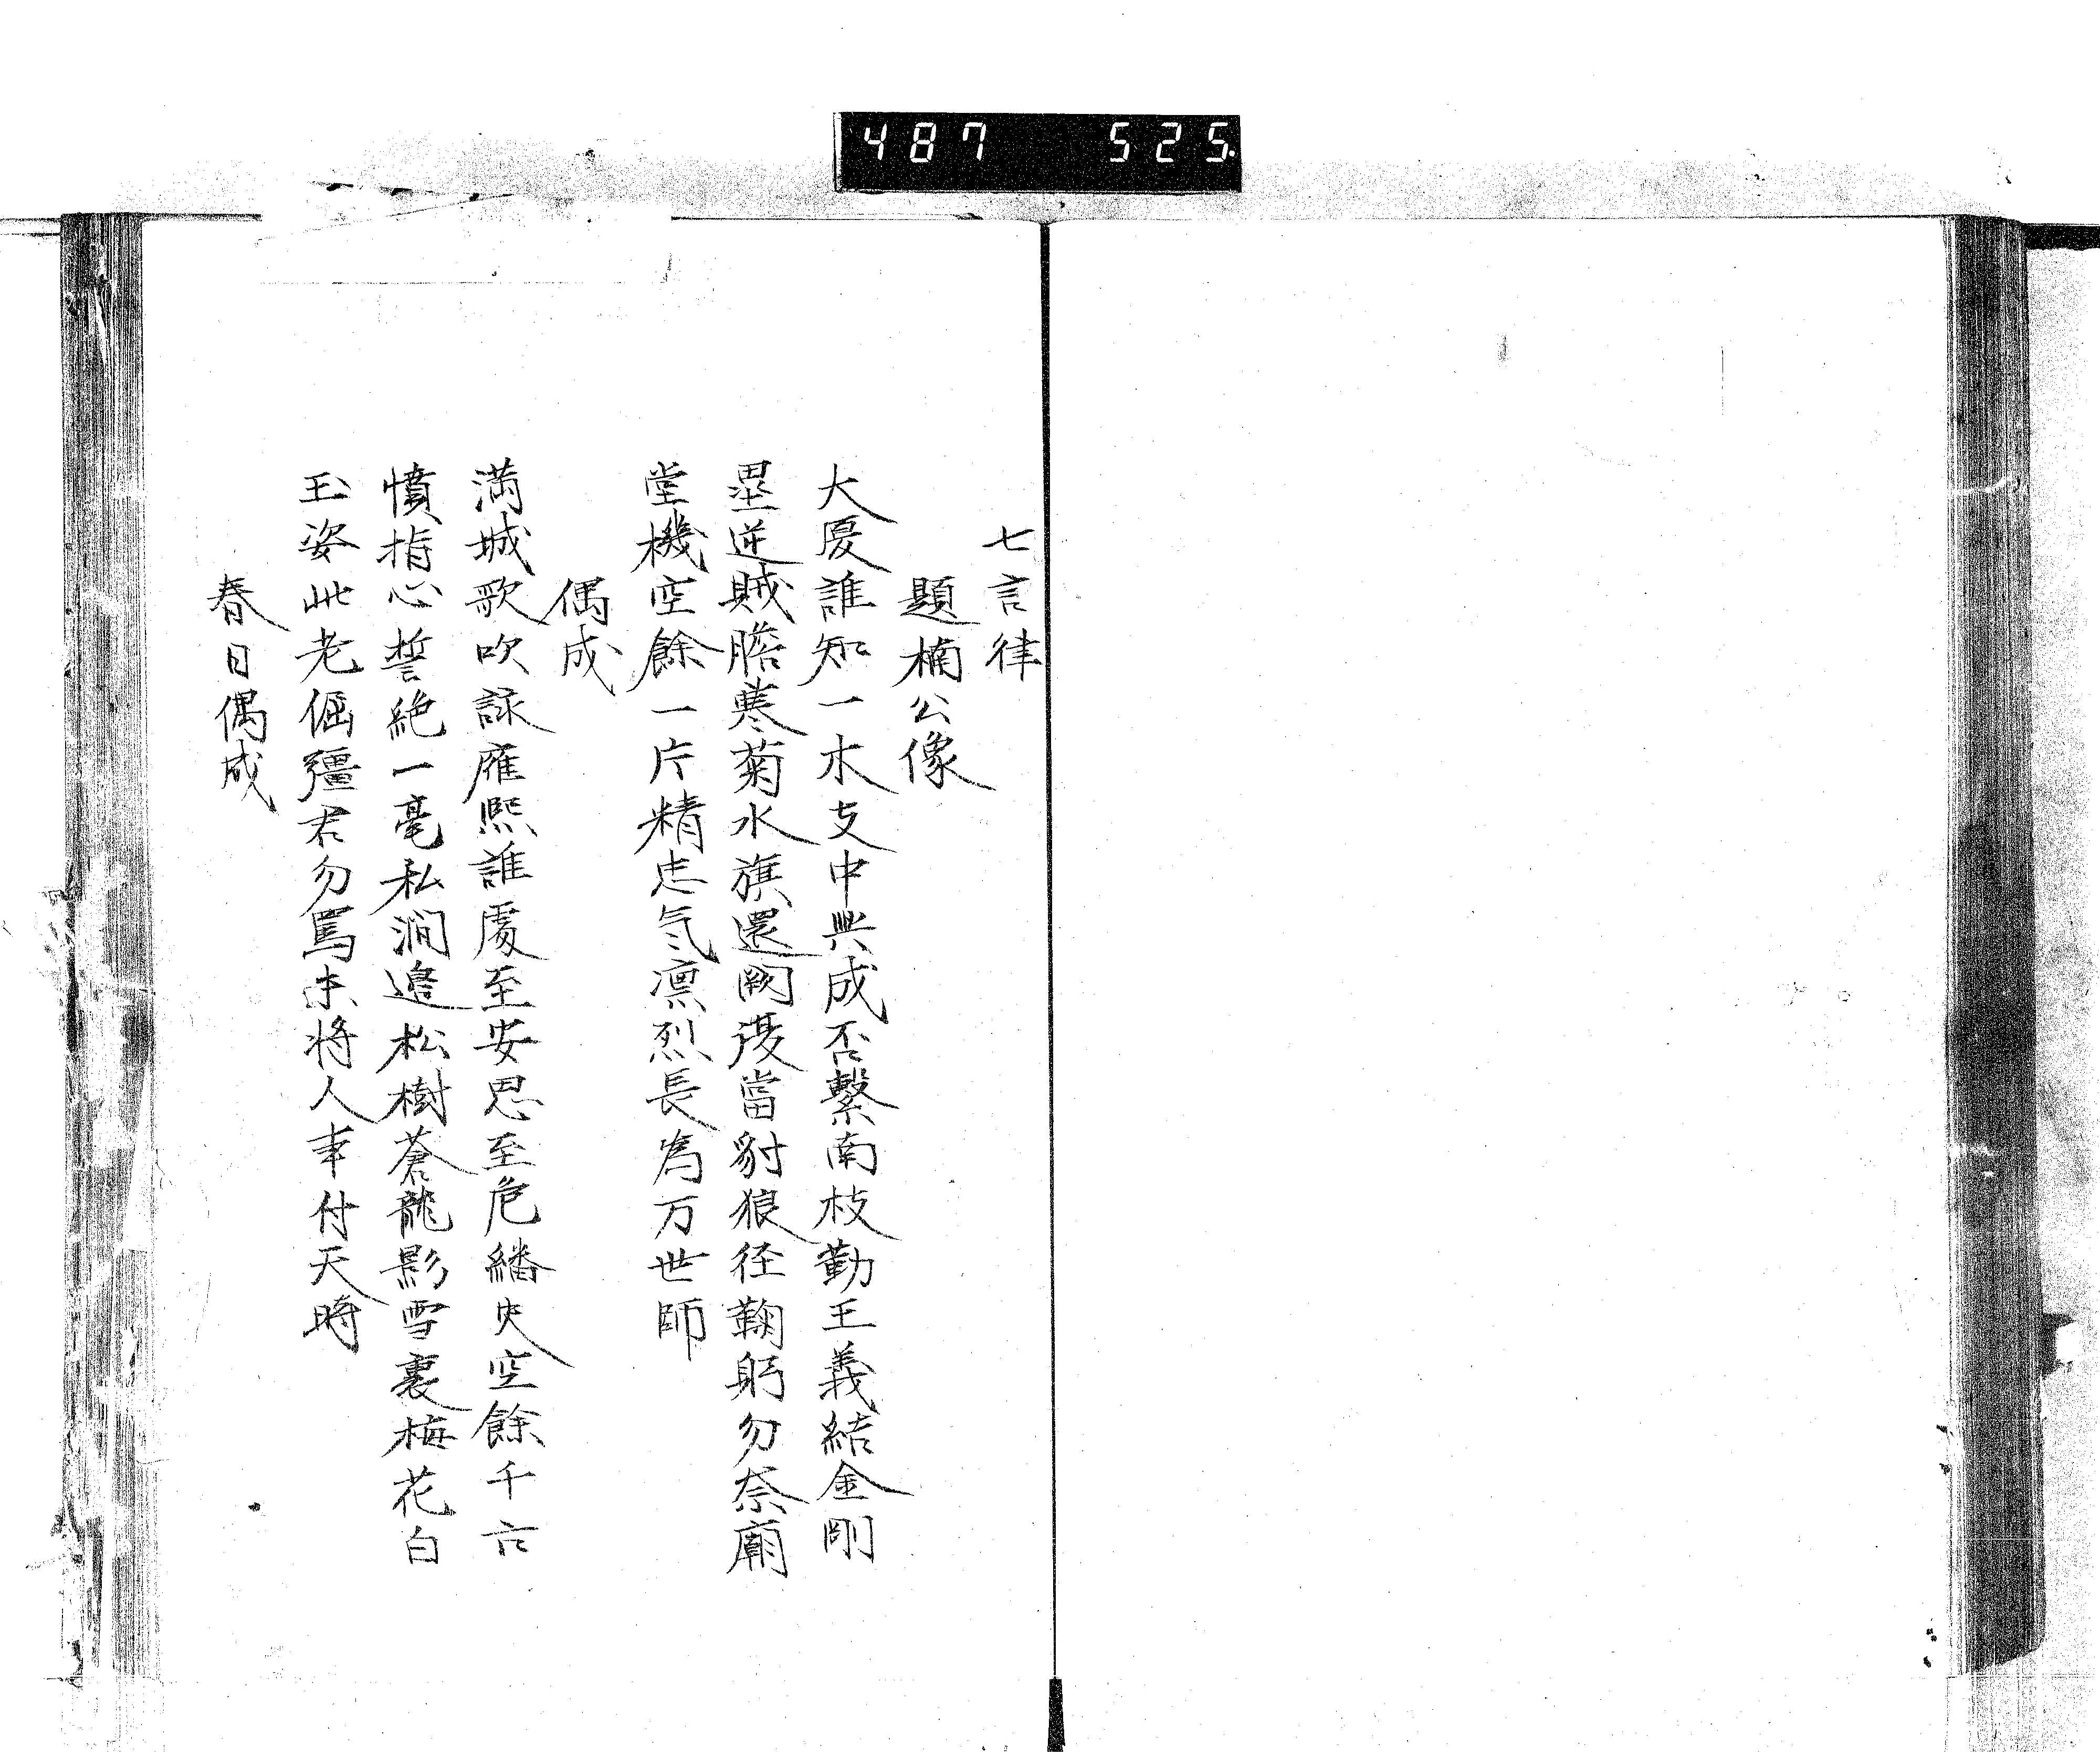 487 525
七言律
題楠公像
大厦誰知一木支中興成否繫南枝勤王義結金剛
塁逆賊膽寒菊水旗還闕護當豺狼径鞠躬勿奈廟
堂機空餘一片精忠气凛烈長為万世師
偶成
満城歌吹詠雍熙誰處至安思至危繙史空餘千古
憤指心誓絶一毫私澗邉松樹蒼龍影雪裏梅花白
玉姿此老倔彊君勿罵未将人事付天時
春日偶成